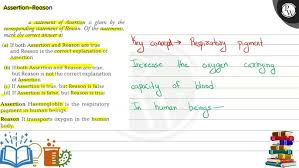 Assertion-Reason
a statement of Assertion is given by the
corresponding statement of Reason. Of the statements,
mark the correct answer as
(a) If both Assertion and Reason are true
and Reason is the correct explanation of
Assertion
(b) If both Assertion and Reason are true,
but Reason is not the correct explanation
of Assertion.
(c) If Assertion is true, but Reason is false
(d) If Assertion is false, but Reason is true.
Assertion Haemoglobin is the respiratory
pigment in human beings.
Reason It transports oxygen in the
human body.
Key concept → Respiratory pigment
Increase the oxygen carrying
capacity of blood
In human beings—